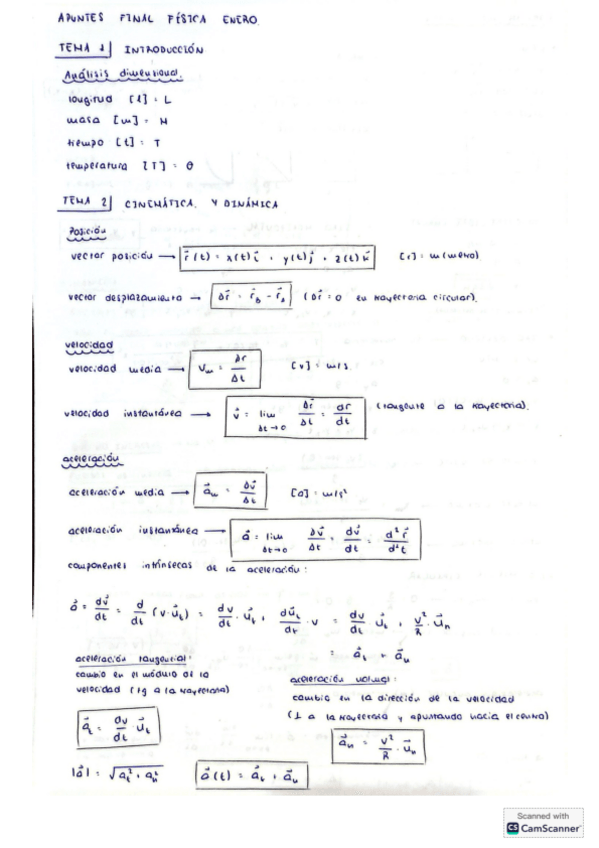 APUNTES FINAL FÍSICA ENERO.
TEMA 1 INTRODUCCIÓN
Análisis dimensional.
longitud [l] = L
masa [m] = M
tiempo [t] = T
temperatura [T] = θ
TEMA 2 CINEMÁTICA. Y DINÁMICA
Posición
vector posición → r⃗(t) = x(t)i⃗ + y(t)j⃗ + z(t)k⃗ [r] = m (metro)
vector desplazamiento → Δr⃗ = r⃗_B - r⃗_A (Δr⃗ = 0 en trayectoria circular).
velocidad
velocidad media → V_m = Δr/Δt [v] = m/s.
velocidad instantánea → v⃗ = lim Δt→0 Δr⃗/Δt = dr⃗/dt (tangente a la trayectoria).
aceleración
aceleración media → a⃗_m = Δv⃗/Δt [a] = m/s²
aceleración instantánea → a⃗ = lim Δt→0 Δv⃗/Δt = dv⃗/dt = d²r⃗/d²t
componentes intrínsecas de la aceleración:
a⃗ = dv⃗/dt = d/dt (v·u⃗_t) = dv/dt · u⃗_t + du⃗_t/dt · v = dv/dt · u⃗_t + v²/R · u⃗_n
= a⃗_t + a⃗_n
aceleración tangencial:
cambio en el módulo de la
velocidad (tg a la trayectoria)
a⃗_t = dv/dt · u⃗_t
aceleración normal:
cambio en la dirección de la velocidad
(⊥ a la trayectoria y apuntando hacia el centro)
a⃗_n = v²/R · u⃗_n
|a⃗| = √(a_t² + a_n²) a⃗(t) = a⃗_t + a⃗_n
Scanned with
CS CamScanner